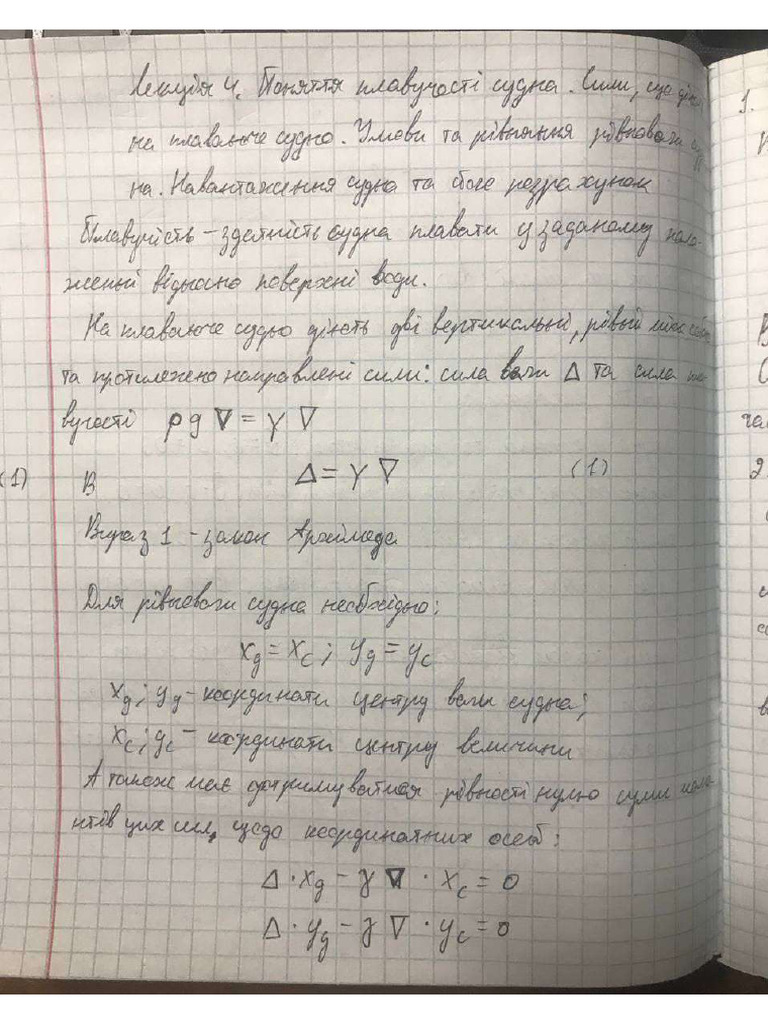 Лекція 4. Поняття плавучості судна. Сили, що діють
на плаваюче судно. Умови та рівняння рівноваги суд
на. Навантаження судна та його розрахунок
Плавучість – здатність судна плавати у заданому поло-
женні відносно поверхні води.
На плаваюче судно діють дві вертикальні, рівні між собою
та протилежно направлені сили: сила ваги Δ та сила пла
вучості ρg∇ = γ∇
(1) В Δ = γ∇ (1)
Вираз 1 – закон Архімеда
Для рівноваги судна необхідно:
xg = xc; yg = yc
xg; yg – координати центру ваги судна;
xc; yc – координати центру величини
А також має дотримуватися рівності нулю суми моме
нтів цих сил, щодо координатних осей:
Δ · xg – γ∇ · xc = 0
Δ · yg – γ∇ · yc = 0
1.
2.